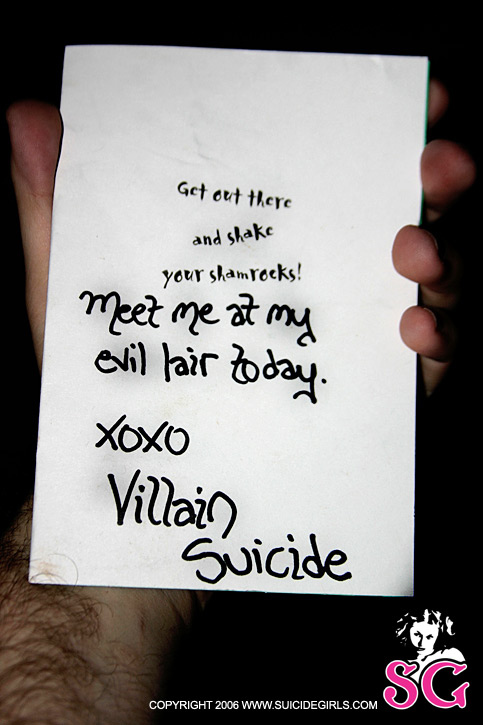 Get out there
and shake
your shamrocks!
Meet me at my
evil lair today.
xoxo
Villain
Suicide
SG
COPYRIGHT 2006 WWW.SUICIDEGIRLS.COM